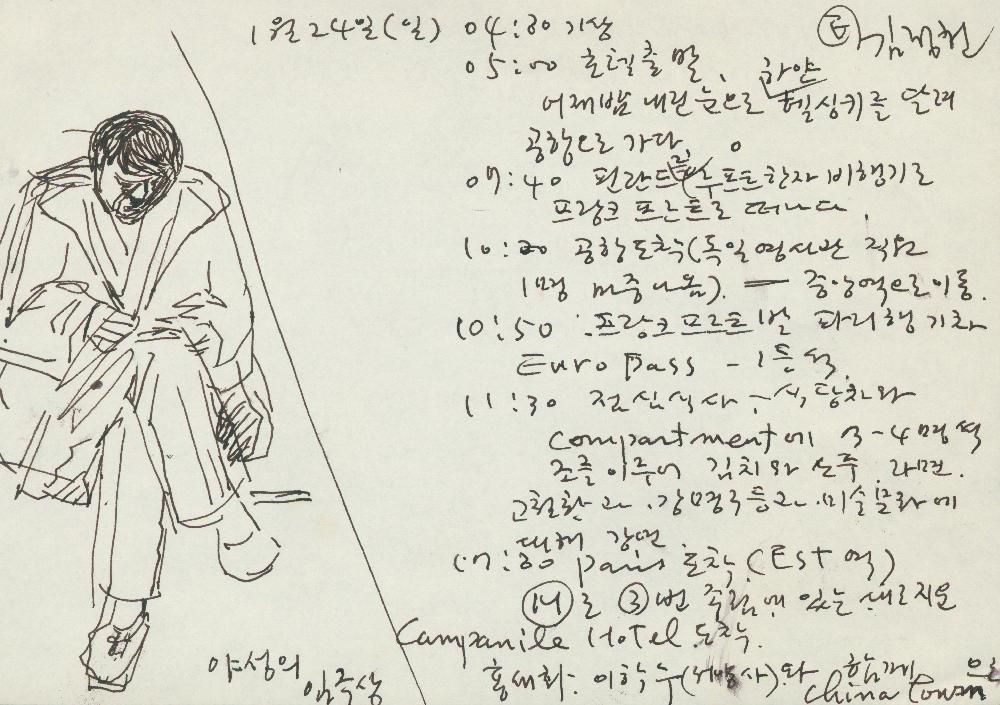 1월 24일(일) 04:30 기상
05:00 호텔출발,
어제밤 내린 눈으로 하얀 헬싱키를 달려
공항으로 가다.
07:40 핀란드 루프트한자 비행기로
프랑크프르트로 떠나다.
10:20 공항도착(독일영사관 직원
1명 마중나옴). — 중앙역으로이동.
10:50 프랑크프르트발 파리행 기차
Euro Pass - 1등석.
11:30 점심식사 - 식당차와
compartment에 3-4명씩
조를이루어 김치와 소주 라면.
고철환과 강명구등과 미술문화에
대해 강연.
17:30 paris 도착 (Est 역)
14로 3번 종점에 있는 새로지은
Campanile Hotel 도착.
홍세화. 이학수( )와 함께
China Town으로
야성의
임국상